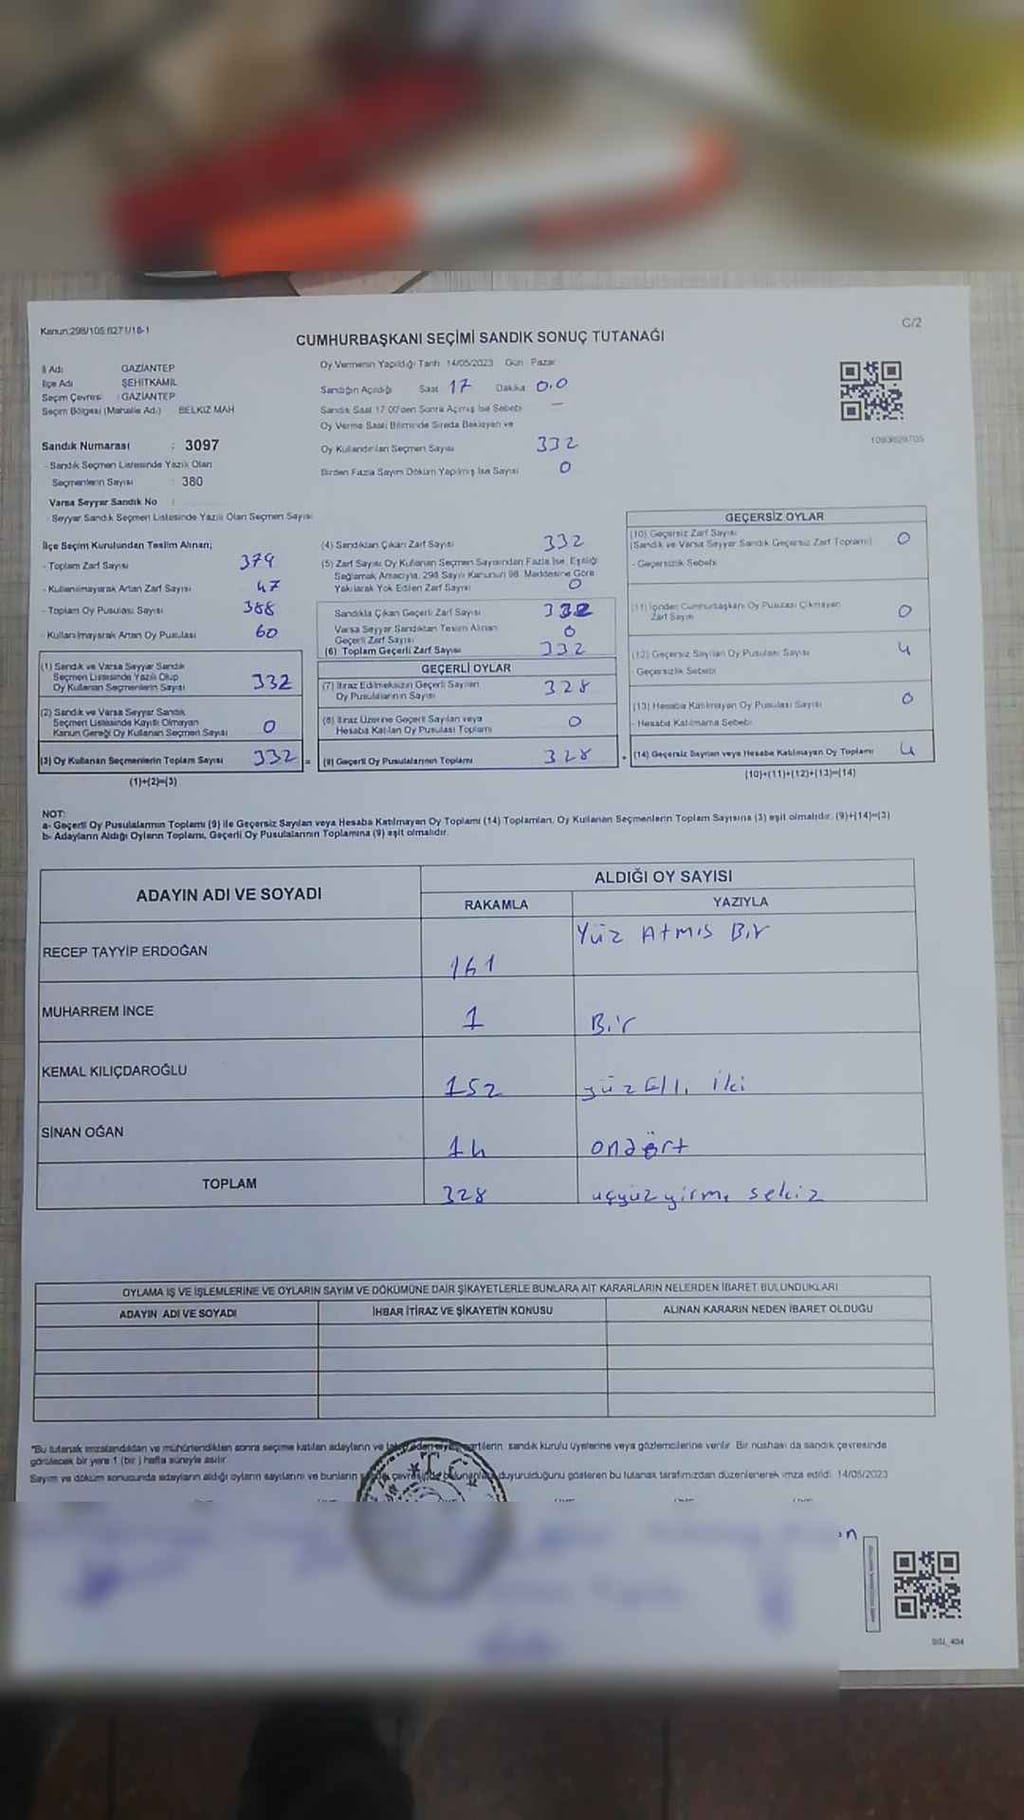 Kanun:298/105,6271/18-1
C/2
CUMHURBAŞKANI SEÇİMİ SANDIK SONUÇ TUTANAĞI
İl Adı GAZİANTEP
İlçe Adı ŞEHİTKAMİL
Seçim Çevresi : GAZİANTEP
Seçim Bölgesi (Mahalle Adı.) BELKIZ MAH
Sandık Numarası : 3097
- Sandık Seçmen Listesinde Yazılı Olan
Seçmenlerin Sayısı : 380
Varsa Seyyar Sandık No :
- Seyyar Sandık Seçmen Listesinde Yazılı Olan Seçmen Sayısı
Oy Vermenin Yapıldığı Tarih 14/05/2023 Gün Pazar
Sandığın Açıldığı Saat 17 Dakika 0.0
Sandık Saat 17:00'den Sonra Açılmış İse Sebebi —
Oy Verme Saati Bitiminde Sırada Bekleyen ve
Oy Kullandırılan Seçmen Sayısı 332
Birden Fazla Sayım Döküm Yapılmış İse Sayısı 0
İlçe Seçim Kurulundan Teslim Alınan;
- Toplam Zarf Sayısı 379
- Kullanılmayarak Artan Zarf Sayısı 47
- Toplam Oy Pusulası Sayısı 388
- Kullanılmayarak Artan Oy Pusulası 60
(1) Sandık ve Varsa Seyyar Sandık
Seçmen Listesinde Yazılı Olup
Oy Kullanan Seçmenlerin Sayısı 332
(2) Sandık ve Varsa Seyyar Sandık
Seçmen Listesinde Kayıtlı Olmayan
Kanun Gereği Oy Kullanan Seçmen Sayısı 0
(3) Oy Kullanan Seçmenlerin Toplam Sayısı 332 =
(1)+(2)=(3)
(4) Sandıktan Çıkan Zarf Sayısı 332
(5) Zarf Sayısı Oy Kullanan Seçmen Sayısından Fazla İse, Eşitliği
Sağlamak Amacıyla, 298 Sayılı Kanunun 98. Maddesine Göre
Yakılarak Yok Edilen Zarf Sayısı 0
Sandıkta Çıkan Geçerli Zarf Sayısı 332
Varsa Seyyar Sandıktan Teslim Alınan
Geçerli Zarf Sayısı 0
(6) Toplam Geçerli Zarf Sayısı 332
GEÇERLİ OYLAR
(7) İtiraz Edilmeksizin Geçerli Sayılan
Oy Pusulalarının Sayısı 328
(8) İtiraz Üzerine Geçerli Sayılan veya
Hesaba Katılan Oy Pusulası Toplamı 0
(9) Geçerli Oy Pusulalarının Toplamı 328 +
GEÇERSİZ OYLAR
(10) Geçersiz Zarf Sayısı 0
(Sandık ve Varsa Seyyar Sandık Geçersiz Zarf Toplamı)
- Geçersizlik Sebebi
(11) İçinden Cumhurbaşkanı Oy Pusulası Çıkmayan
Zarf Sayısı 0
(12) Geçersiz Sayılan Oy Pusulası Sayısı 4
- Geçersizlik Sebebi
(13) Hesaba Katılmayan Oy Pusulası Sayısı 0
- Hesaba Katılmama Sebebi
(14) Geçersiz Sayılan veya Hesaba Katılmayan Oy Toplamı 4
(10)+(11)+(12)+(13)=(14)
NOT:
a- Geçerli Oy Pusulalarının Toplamı (9) ile Geçersiz Sayılan veya Hesaba Katılmayan Oy Toplamı (14) Toplamları, Oy Kullanan Seçmenlerin Toplam Sayısına (3) eşit olmalıdır. (9)+(14)=(3)
b- Adayların Aldığı Oyların Toplamı, Geçerli Oy Pusulalarının Toplamına (9) eşit olmalıdır.
ADAYIN ADI VE SOYADI ALDIĞI OY SAYISI
RAKAMLA YAZIYLA
RECEP TAYYİP ERDOĞAN 161 Yüz Atmış Bir
MUHARREM İNCE 1 Bir
KEMAL KILIÇDAROĞLU 152 yüz Elli iki
SİNAN OĞAN 14 ondört
TOPLAM 328 üçyüz yirmi sekiz
OYLAMA İŞ VE İŞLEMLERİNE VE OYLARIN SAYIM VE DÖKÜMÜNE DAİR ŞİKAYETLERLE BUNLARA AİT KARARLARIN NELERDEN İBARET BULUNDUKLARI
ADAYIN ADI VE SOYADI İHBAR İTİRAZ VE ŞİKAYETİN KONUSU ALINAN KARARIN NEDEN İBARET OLDUĞU
*Bu tutanak imzalandıktan ve mühürlendikten sonra seçime katılan adayların ve siyasi partilerin sandık kurulu üyelerine veya gözlemcilerine verilir. Bir nüshası da sandık çevresinde
görülecek bir yere 1 (bir) hafta süreyle asılır
Sayım ve döküm sonucunda adayların aldığı oyların sayılarını ve bunların sandık çevresinde duyurulduğunu gösteren bu tutanak tarafımızdan düzenlenerek imza edildi. 14/05/2023
T.C.